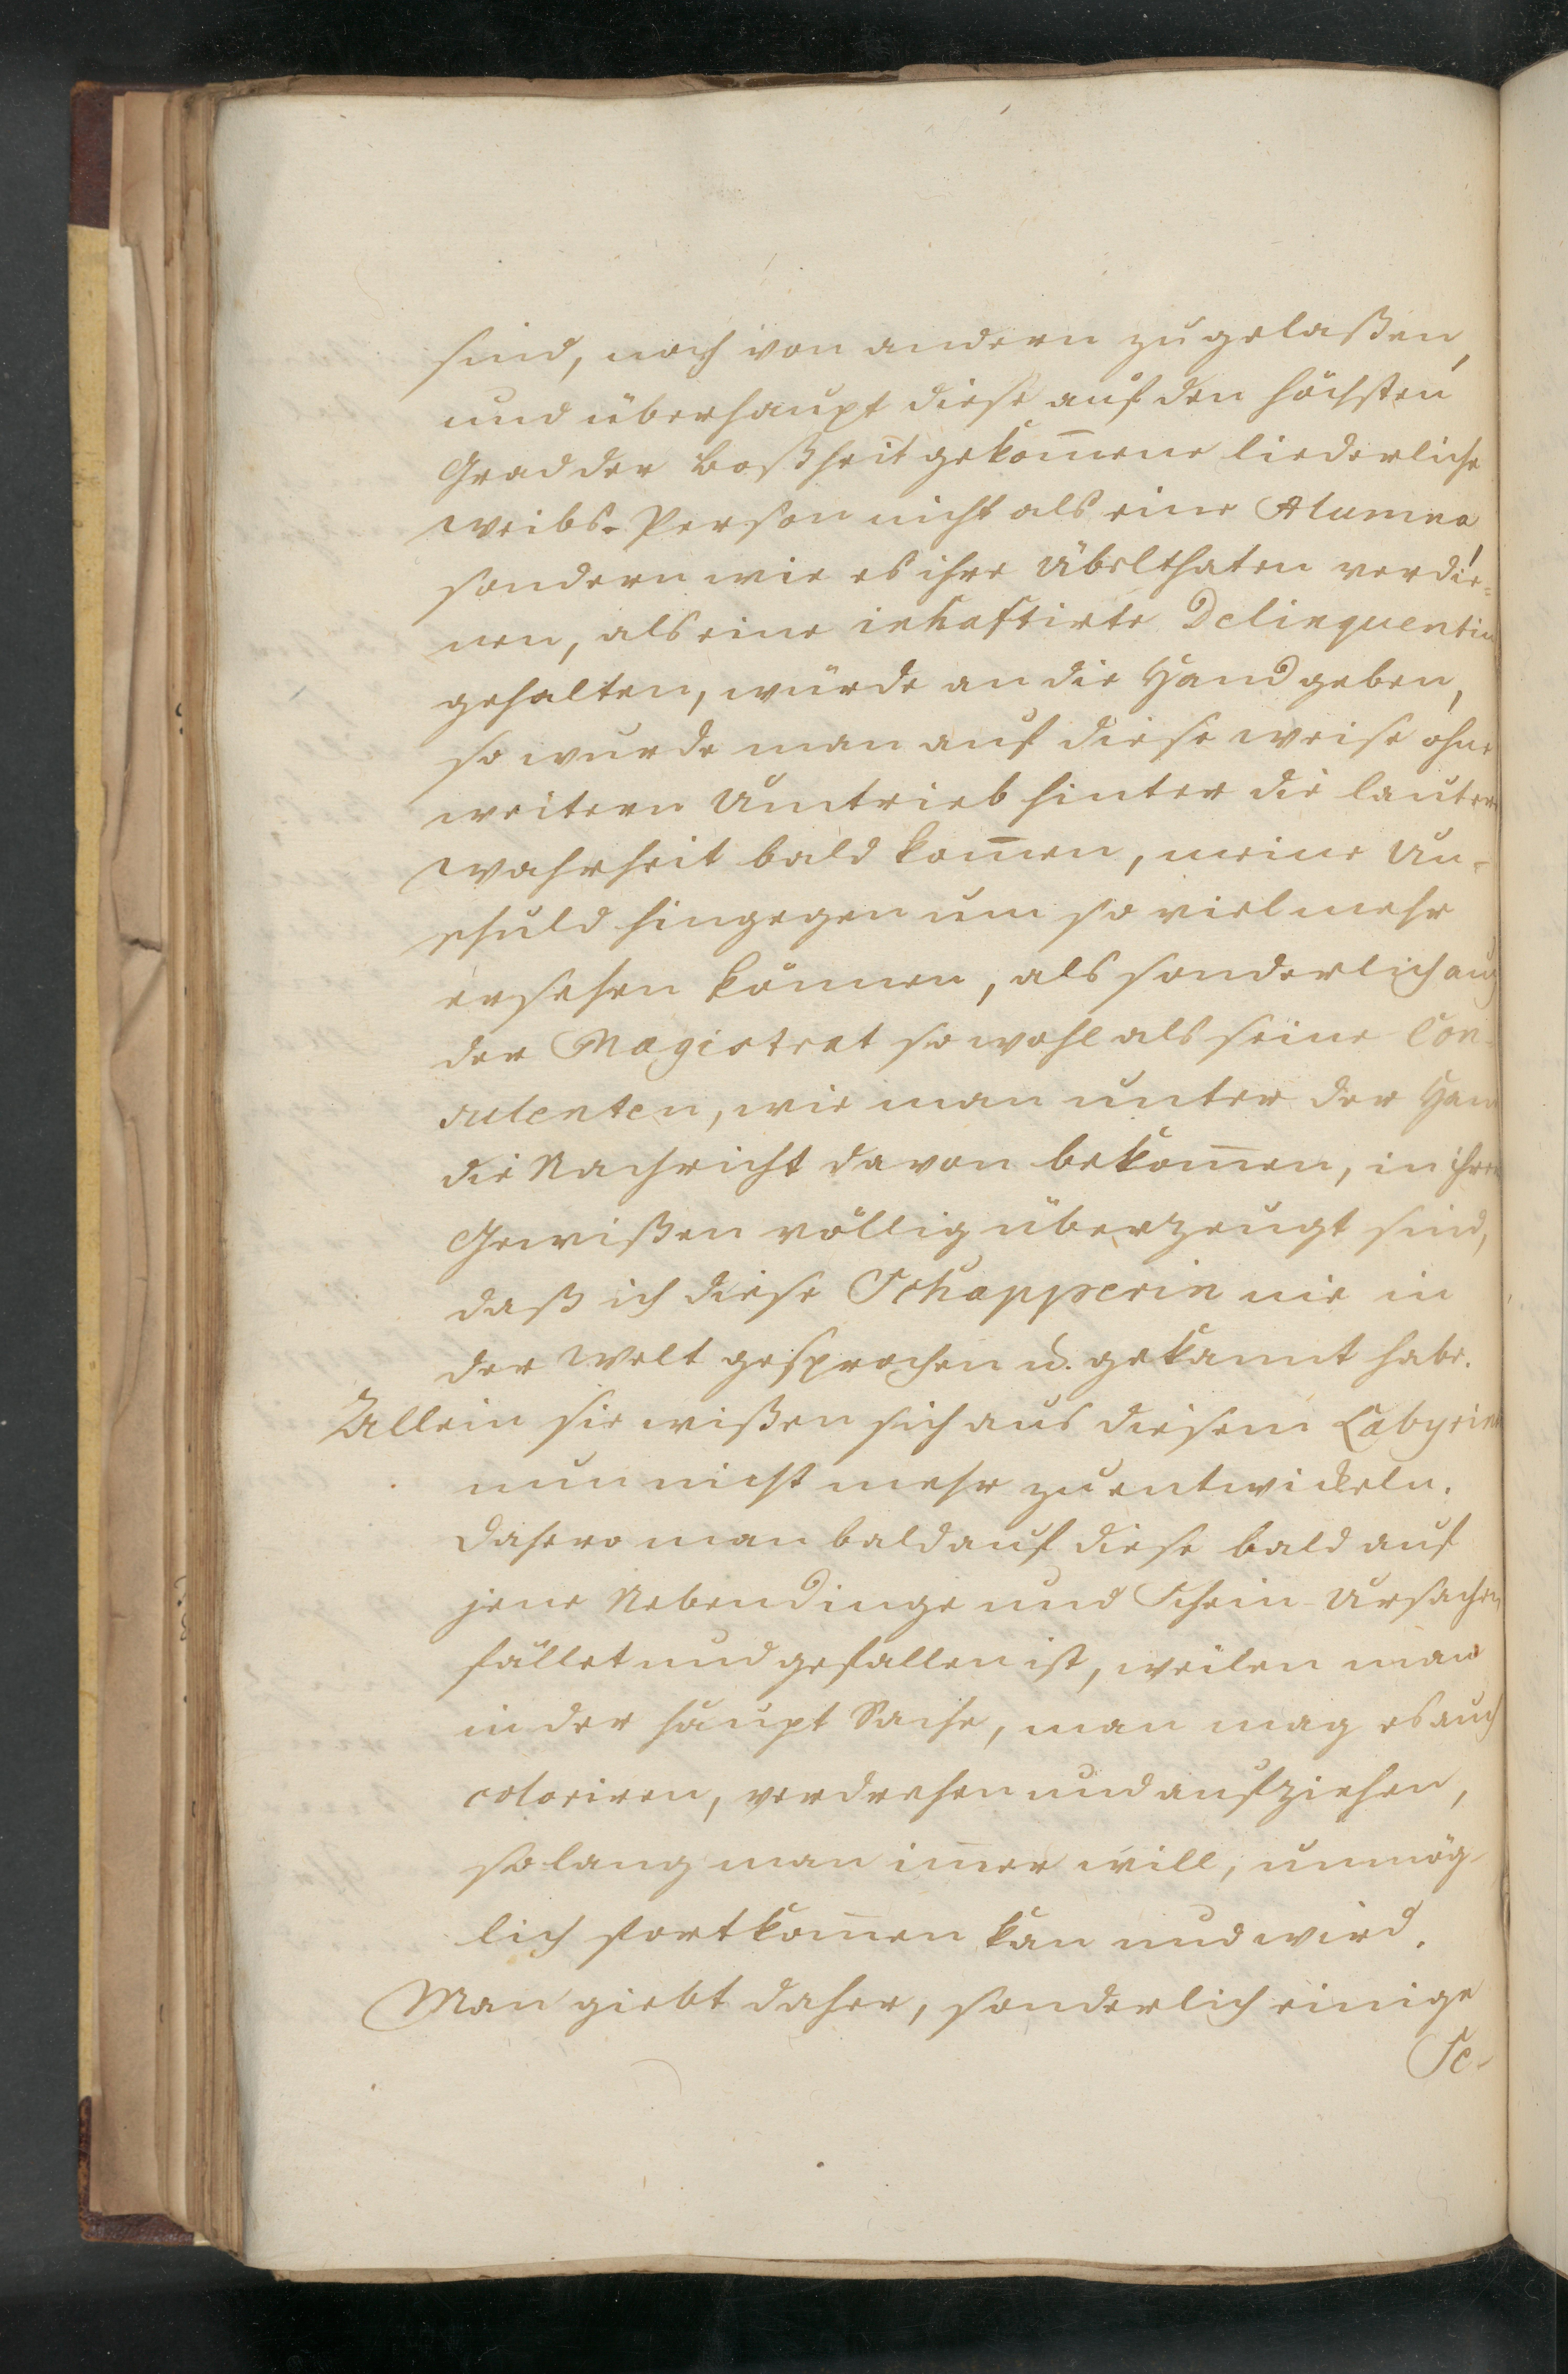 sind, noch von andern zugelaßen,
und überhaupt diese auf den höchsten
Grad der Boßheit gekom̄ene liederliche
Weibs-Person nicht als eine Alumna
sondern wie es ihre Übelthaten verdie-
nen, als eine inhaftirte Delinquentin
gehalten, würde an die Hand geben,
so wurde man auf diese weise ohne
weitern Umtrieb hinter die lautere
Wahrheit bald kom̄en, meine Un-
schuld hingegen um so viel mehr
ersehen können, als sonderlich auch
der Magistrat sowohl als seine Con-
sulenten, wie man unter der Hand
die Nachricht davon bekom̄en, in ihrem
Gewißen völlig überzeugt sind,
daß ich diese Schapperin nie in
der Welt gesprochen u. gekannt habe.
Allein sie wißen sich aus diesem Labyrint
nun nicht mehr zu entwickeln.
Dahero man bald auf diese bald auf
jene Nebendinge und Schein-Ursachen
fället und gefallen ist, weilen man
in der Haupt Sache, man mag es auch
coloriren, verdrehen und aufziehen,
so lang man im̄er will, unmög-
lich fortkom̄en kan und wird.
Man giebt daher, sonderlich einige
Se-